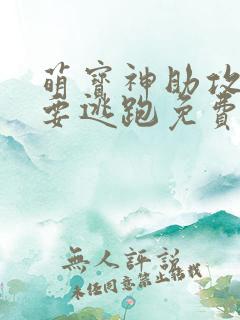 萌寶神助攻
要逃跑免費
無人評說
未經同意禁止轉載